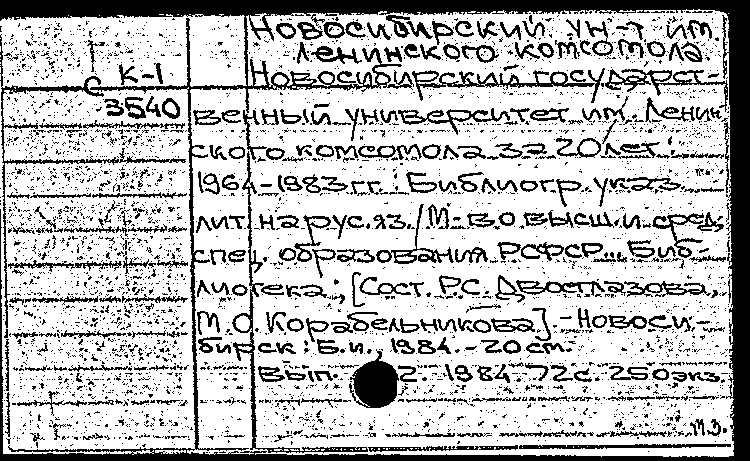 Новосибирский ун-т им.
Ленинского комсомола.
С К-1
3540
Новосибирский государст-
венный университет им. Ленин-
ского комсомола за 20 лет:
1964-1983 гг.: Библиогр. указ.
лит. на рус. яз. / М-во высш. и сред.
спец. образования РСФСР... Биб-
лиотека; [Сост. Р.С. Двоеглазова,
М.О. Корабельникова]. - Новоси-
бирск: Б.и., 1984. - 20 см.
Вып. 2. 1984. 72 с. 250 экз.